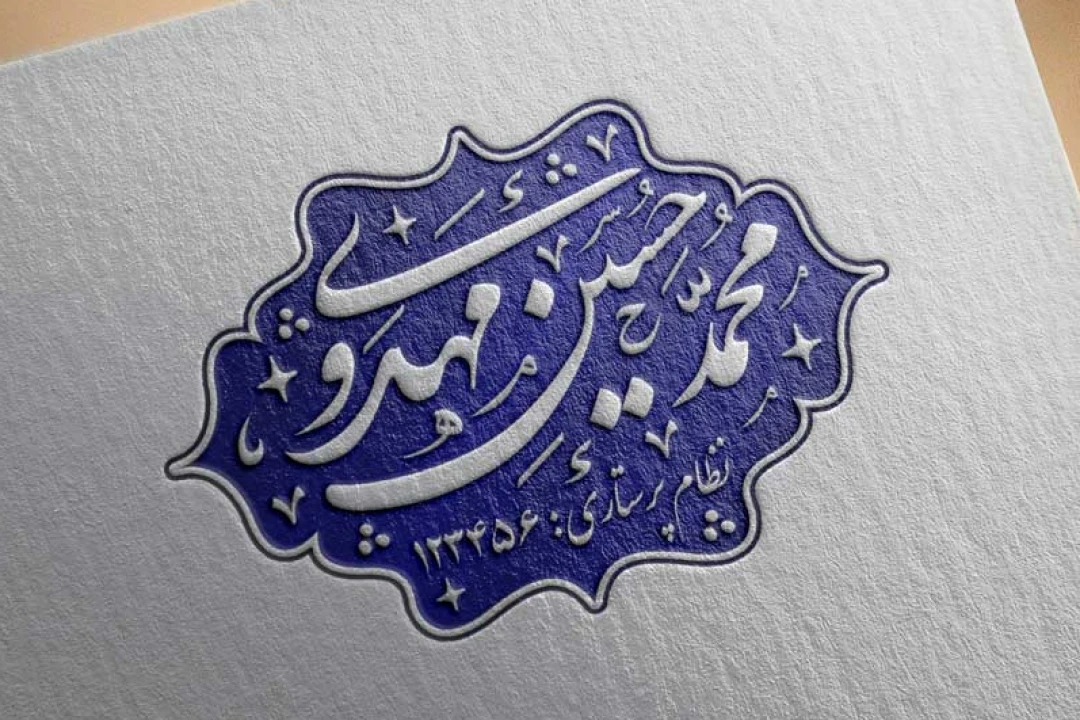 محمد حسین مهدوی
نظام پرستاری: ۱۲۳۴۵۶